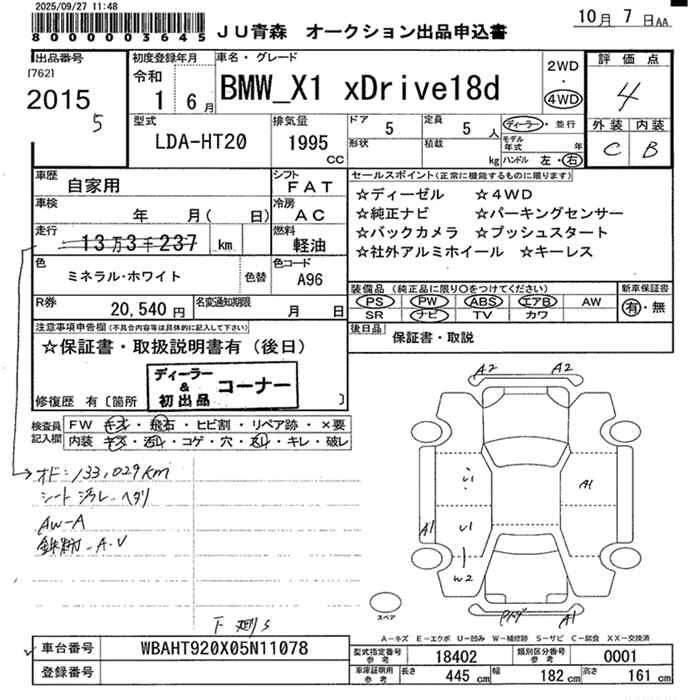 2025/09/27 11:48
800000003645
JU青森 オークション出品申込書
10月 7日AA
出品番号
[762]
2015
5
初度登録年月
令和
1 6月
車名・グレード
BMW_X1 xDrive18d
2WD
・
4WD
評価点
4
外装 内装
C B
型式
LDA-HT20
排気量
1995
CC
ドア
5
形状
定員
5人
積載
kg
ディーラー・並行
モデル年式 年
ハンドル 左・右
車歴
自家用
シフト
FAT
セールスポイント(正常に機能するものに限ります)
☆ディーゼル ☆4WD
☆純正ナビ ☆パーキングセンサー
☆バックカメラ ☆プッシュスタート
☆社外アルミホイール ☆キーレス
車検
年 月( 日)
冷房
AC
走行
13万3千237 km
燃料
軽油
色
ミネラル・ホワイト
色替
色コード
A96
装備品 (純正品に限り○をつけてください)
PS PW ABS エアB AW
SR ナビ TV カワ
新車保証書
有・無
R券
20,540円
名変通知期限
月 日
後日品
保証書・取説
注意事項申告欄(不具合内容等は具体的に記入して下さい)
☆保証書・取扱説明書有(後日)
ディーラー
&
初出品
コーナー
修復歴 有〔箇所 〕
検査員
記入欄
FW キズ・飛石・ヒビ割・リペア跡・×要
内装 キズ・汚れ・コゲ・穴・スレ・キレ・破レ
オド:133,029km
シート汚レ・ヘタリ
AW-A
鉄粉-A.U
下廻S
A2 A2
U1
A1
A1
U1
W2
A1
スペア
A-キズ E-エクボ U-凹み W-補修跡 S-サビ C-腐食 XX-交換済
車台番号
WBAHT920X05N11078
登録番号
型式指定番号
参考
18402
類別区分番号
参考
0001
車庫証明用
参考
長さ 445cm 幅 182cm 高さ 161cm